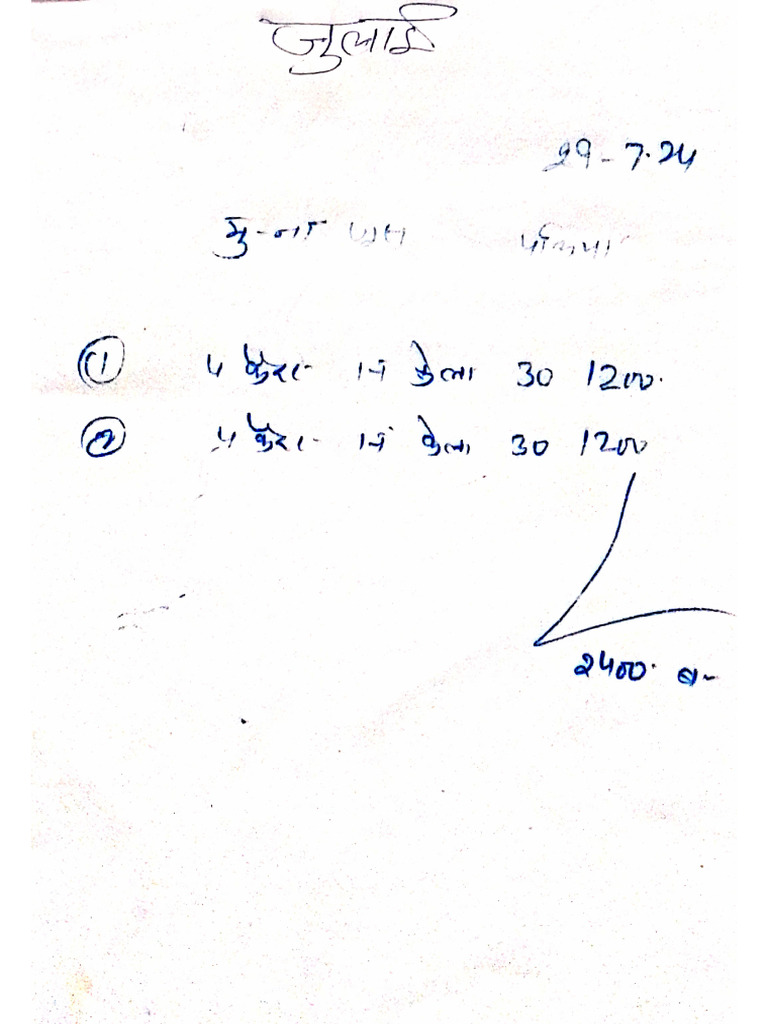 जुलाई
29-7.24
मुन्ना
① 4 कैरेट 1नं केला 30 1200.
② 4 कैरेट 1नं केला 30 1200
2400.